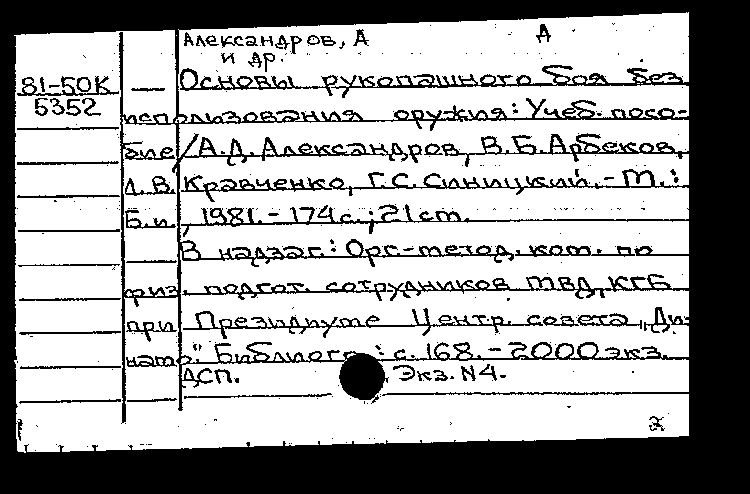 Александров, А Д
и др.
81-50К
5352
— Основы рукопашного боя без
использования оружия: Учеб. посо-
бие/А.Д. Александров, В.Б. Арбеков,
Л.В. Кравченко, Г.С. Синицкий. - М.:
Б.и., 1981. - 174 с.; 21 см.
В надзаг: Орг-метод. ком. по
физ. подгот. сотрудников МВД, КГБ
при Президиуме Центр. совета „Ди-
намо". Библиогр.: с. 168. - 2000 экз.
ДСП. Экз. N4.